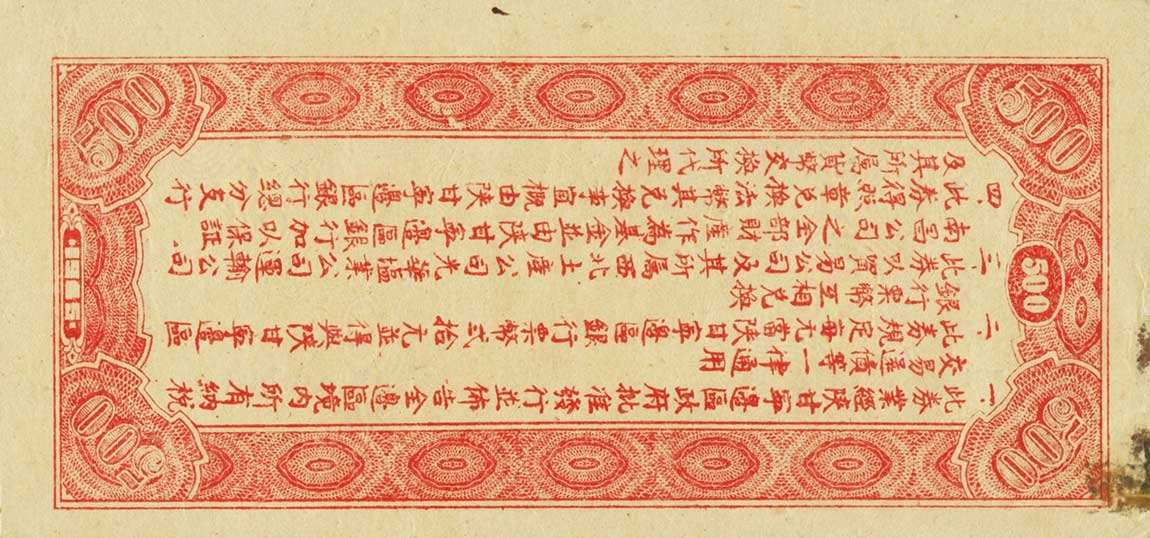 500
500
500
一、此券業經陝甘寧邊區政府批准發行並佈告全邊區境內所有納稅
交易還債等一律通用
二、此券規定每元當陝甘寧邊區銀行票幣弍拾元並得與陝甘寧邊區
銀行票幣互相兌換
三、此券以貿易公司及其所屬西北土產公司光華塩業公司運輸公司
南昌公司之全部財產作為基金並由陝甘寧邊區銀行加以保証
四、此券得照章兌換法幣其兌換事宜概由陝甘寧邊區銀行總分支行
及其所屬貨幣交換所代理之
500
500